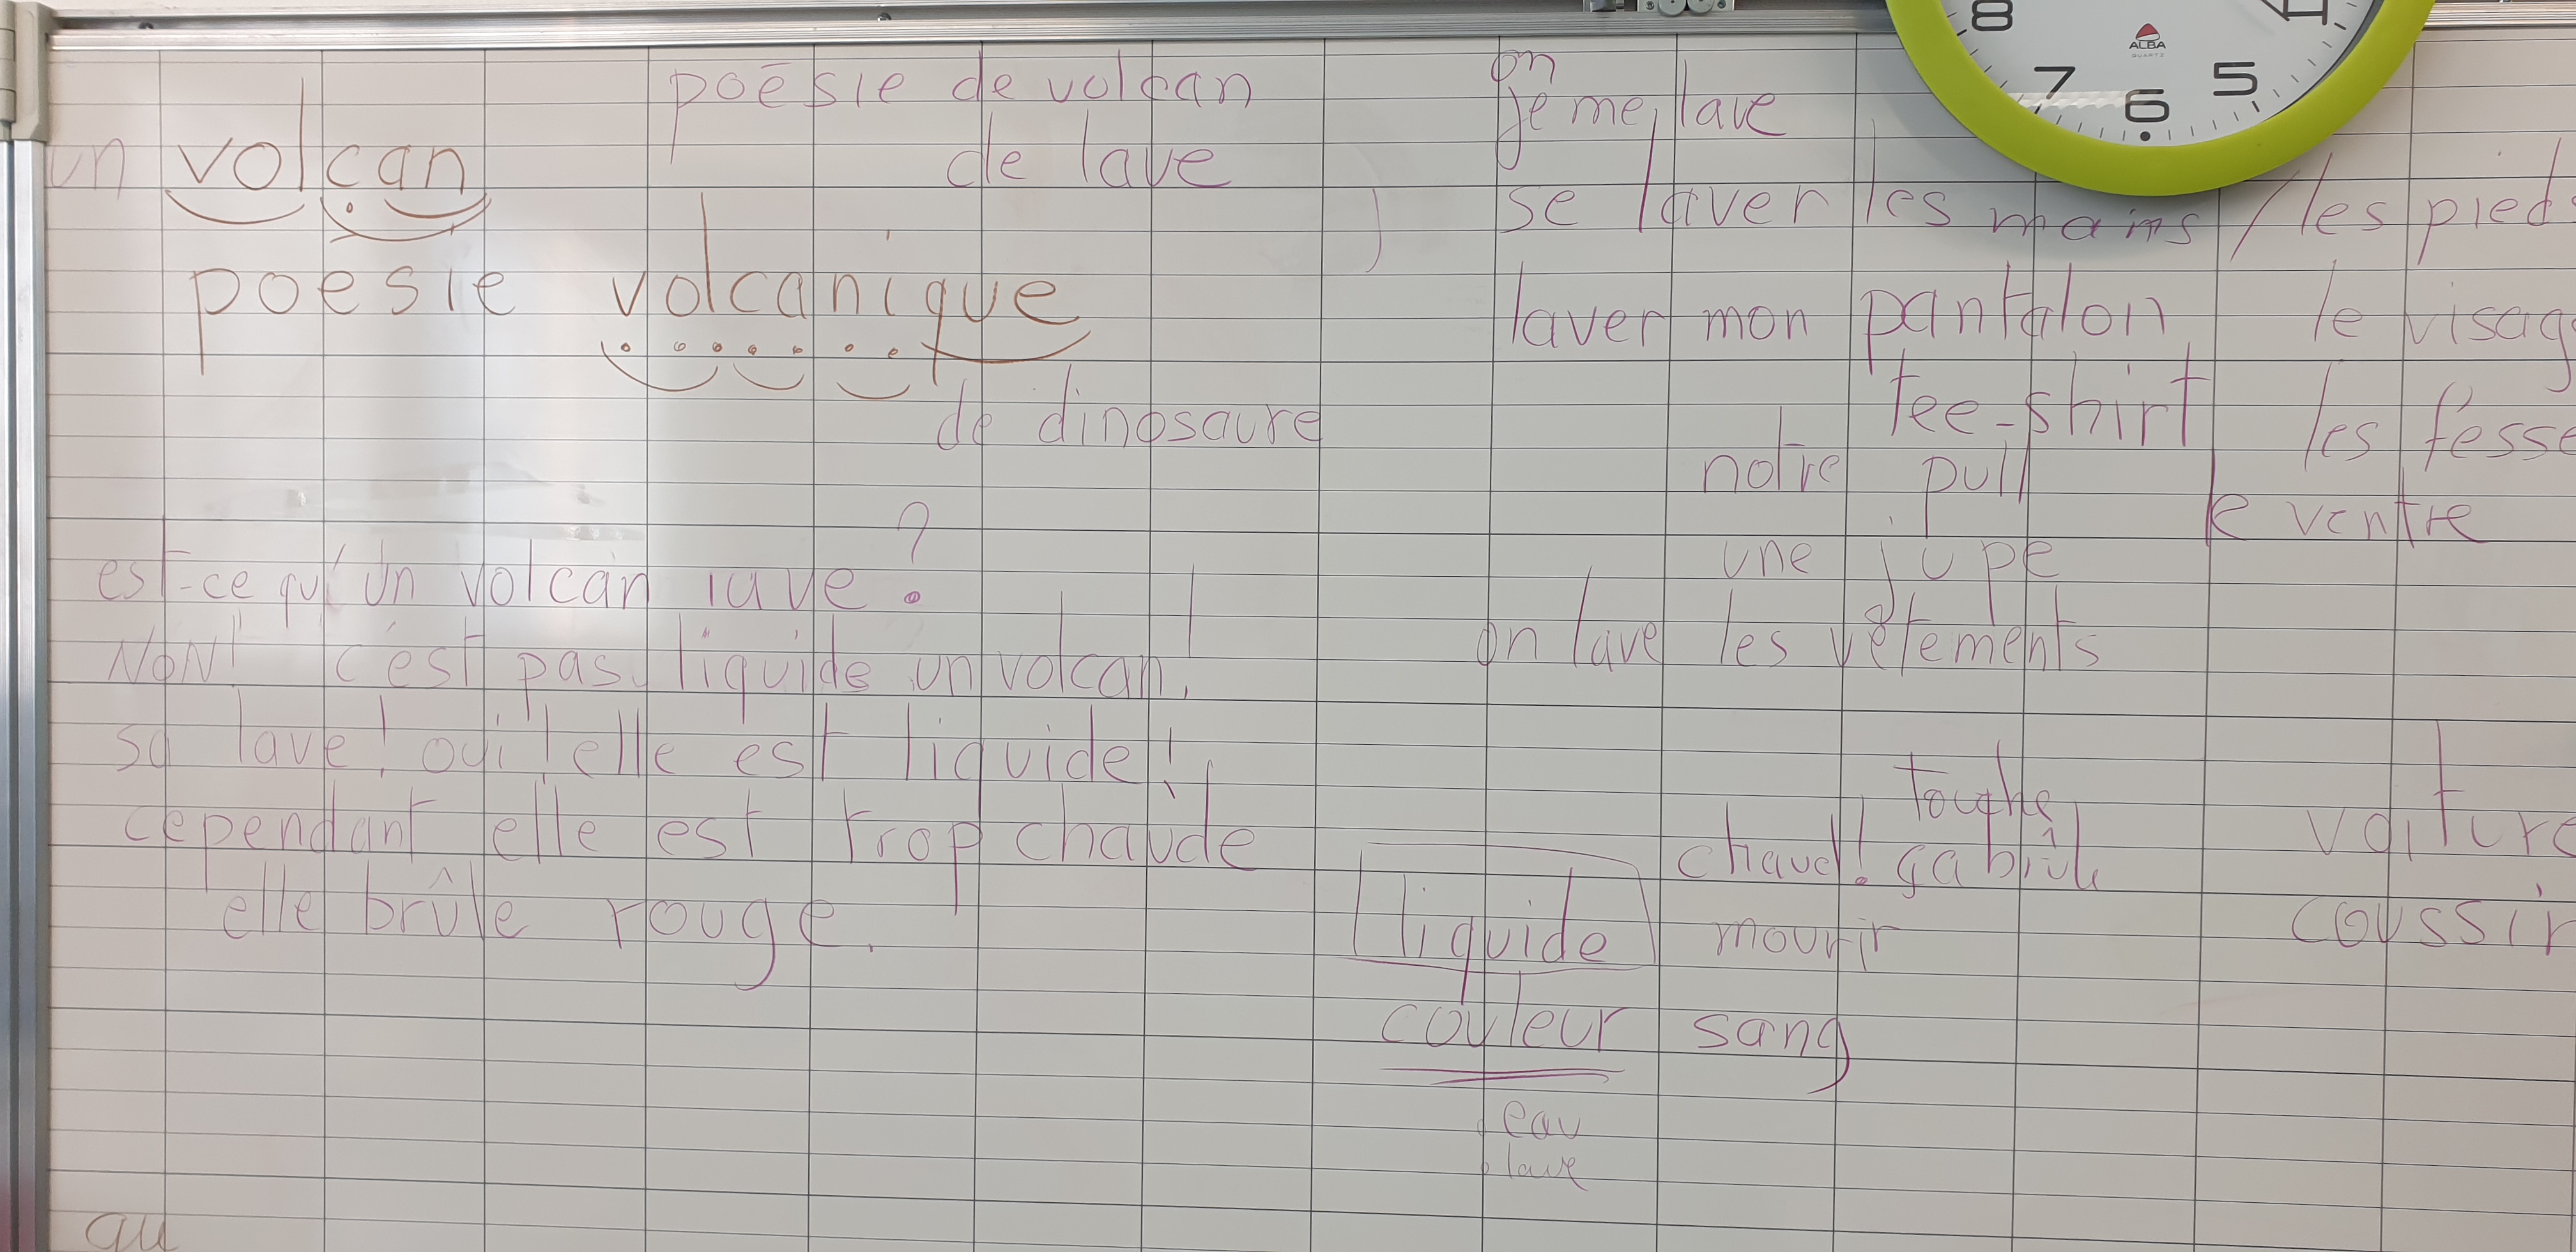 poésie de volcan
de lave
un volcan
poésie volcanique
de dinosaure
est-ce qu'un volcan lave ?
NON! c'est pas liquide un volcan!
sa lave! oui! elle est liquide!
cependant elle est trop chaude
elle brûle rouge.
au
on
je me lave
se laver les mains / les pieds
laver mon pantalon
tee-shirt
notre pull
une jupe
on lave les vêtements
le visag
les fesse
le ventre
chaud! ça brûle
liquide mourir
couleur sang
eau
lave
voiture
coussin
8 7 6 5 4
ALBA
QUARTZ